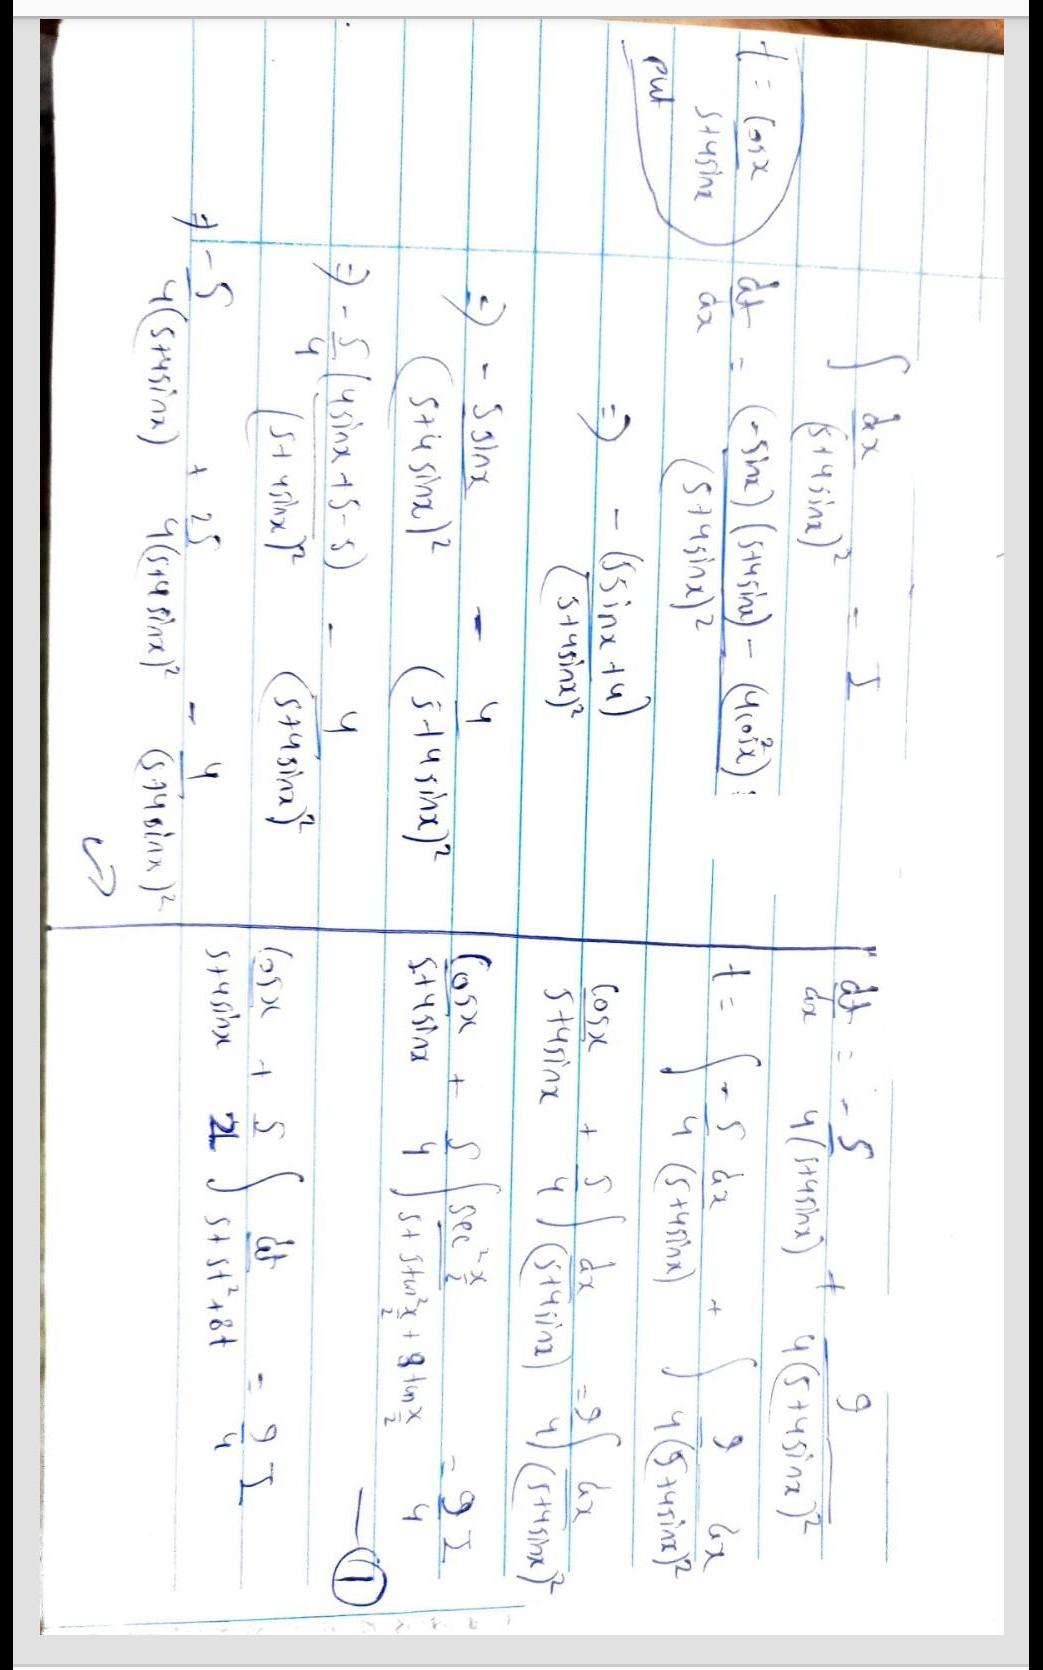 ∫ dx/(5+4sinx)² = I
t = cosx/(5+4sinx)
put
dt/dx = ((-sinx)(5+4sinx) - (4cos²x))/(5+4sinx)²
=) -(5sinx+4)/(5+4sinx)²
=) - 5sinx/(5+4sinx)² - 4/(5+4sinx)²
=) - 5/4 (4sinx+5-5)/(5+4sinx)² - 4/(5+4sinx)²
=) -5/4(5+4sinx) + 25/4(5+4sinx)² - 4/(5+4sinx)²
dt/dx = -5/4(5+4sinx) + 9/4(5+4sinx)²
t = ∫ -5/4 dx/(5+4sinx) + ∫ 9/4(5+4sinx)² dx
cosx/(5+4sinx) + 5/4 ∫ dx/(5+4sinx) = 9/4 ∫ dx/(5+4sinx)²
cosx/(5+4sinx) + 5/4 ∫ sec² x/2 / (5+5tan² x/2 + 8tan x/2) = 9/4 I
— ①
cosx/(5+4sinx) + 5/2 ∫ dt/(5+5t²+8t) = 9/4 I